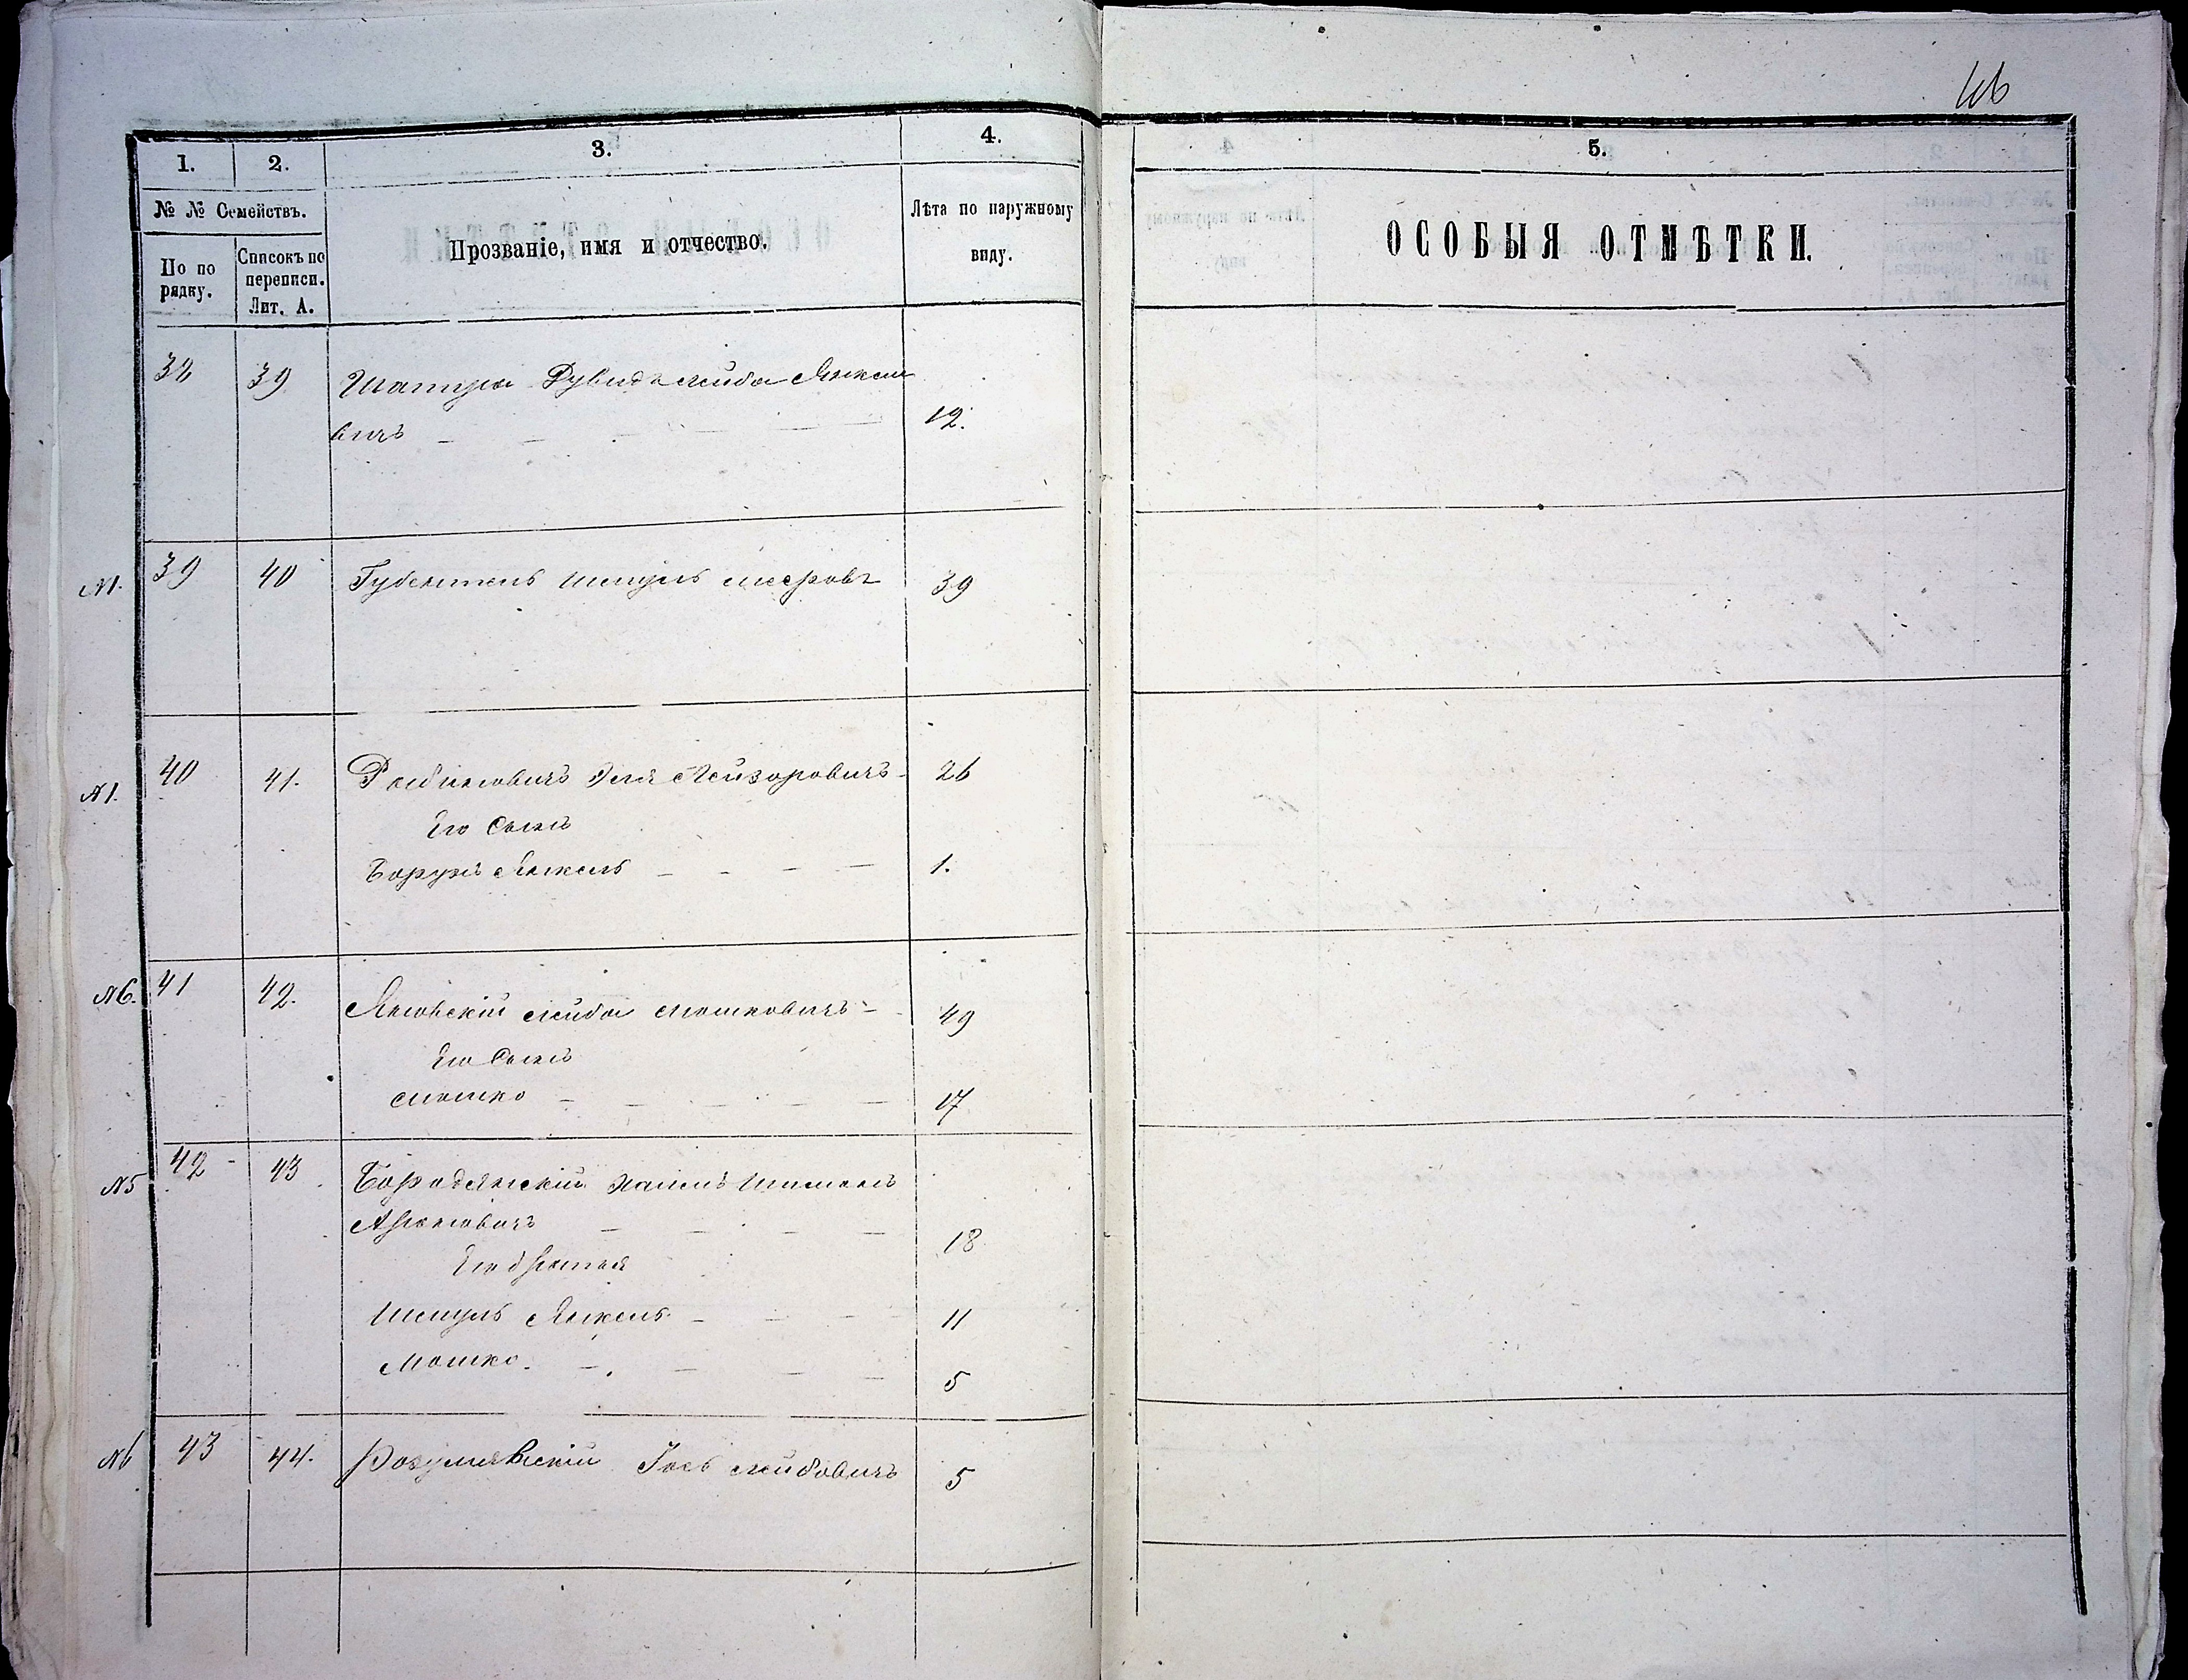 46
1.
2.
3.
4.
5.
№ № Семействъ.
По по
рядку.
Списокъ по
переписи.
Лит. А.
Прозваніе, имя и отчество.
Лѣта по наружному
виду.
ОСОБЫЯ ОТМѢТКИ.
38 39 Шапиро Рувидъ Лейба Янкеле
вичъ 12.
№1. 39 40 Шмуль Мееровъ 39
№1. 40 41. Рабиновичъ Эля Лейзоровичъ 26
Его Сынъ
Борухъ Янкель 1.
№6. 41 42. Яновскій Лейба Мошковичъ 49
Его Сынъ
Мошко 17
№5 42 43 Бородянскій Хаимъ Шимонъ
Ароновичъ 18
Его братья
Шмуль Янкель 11
Мошко. 5
№6 43 44. Розумовскій Іось Лейбовичъ 5